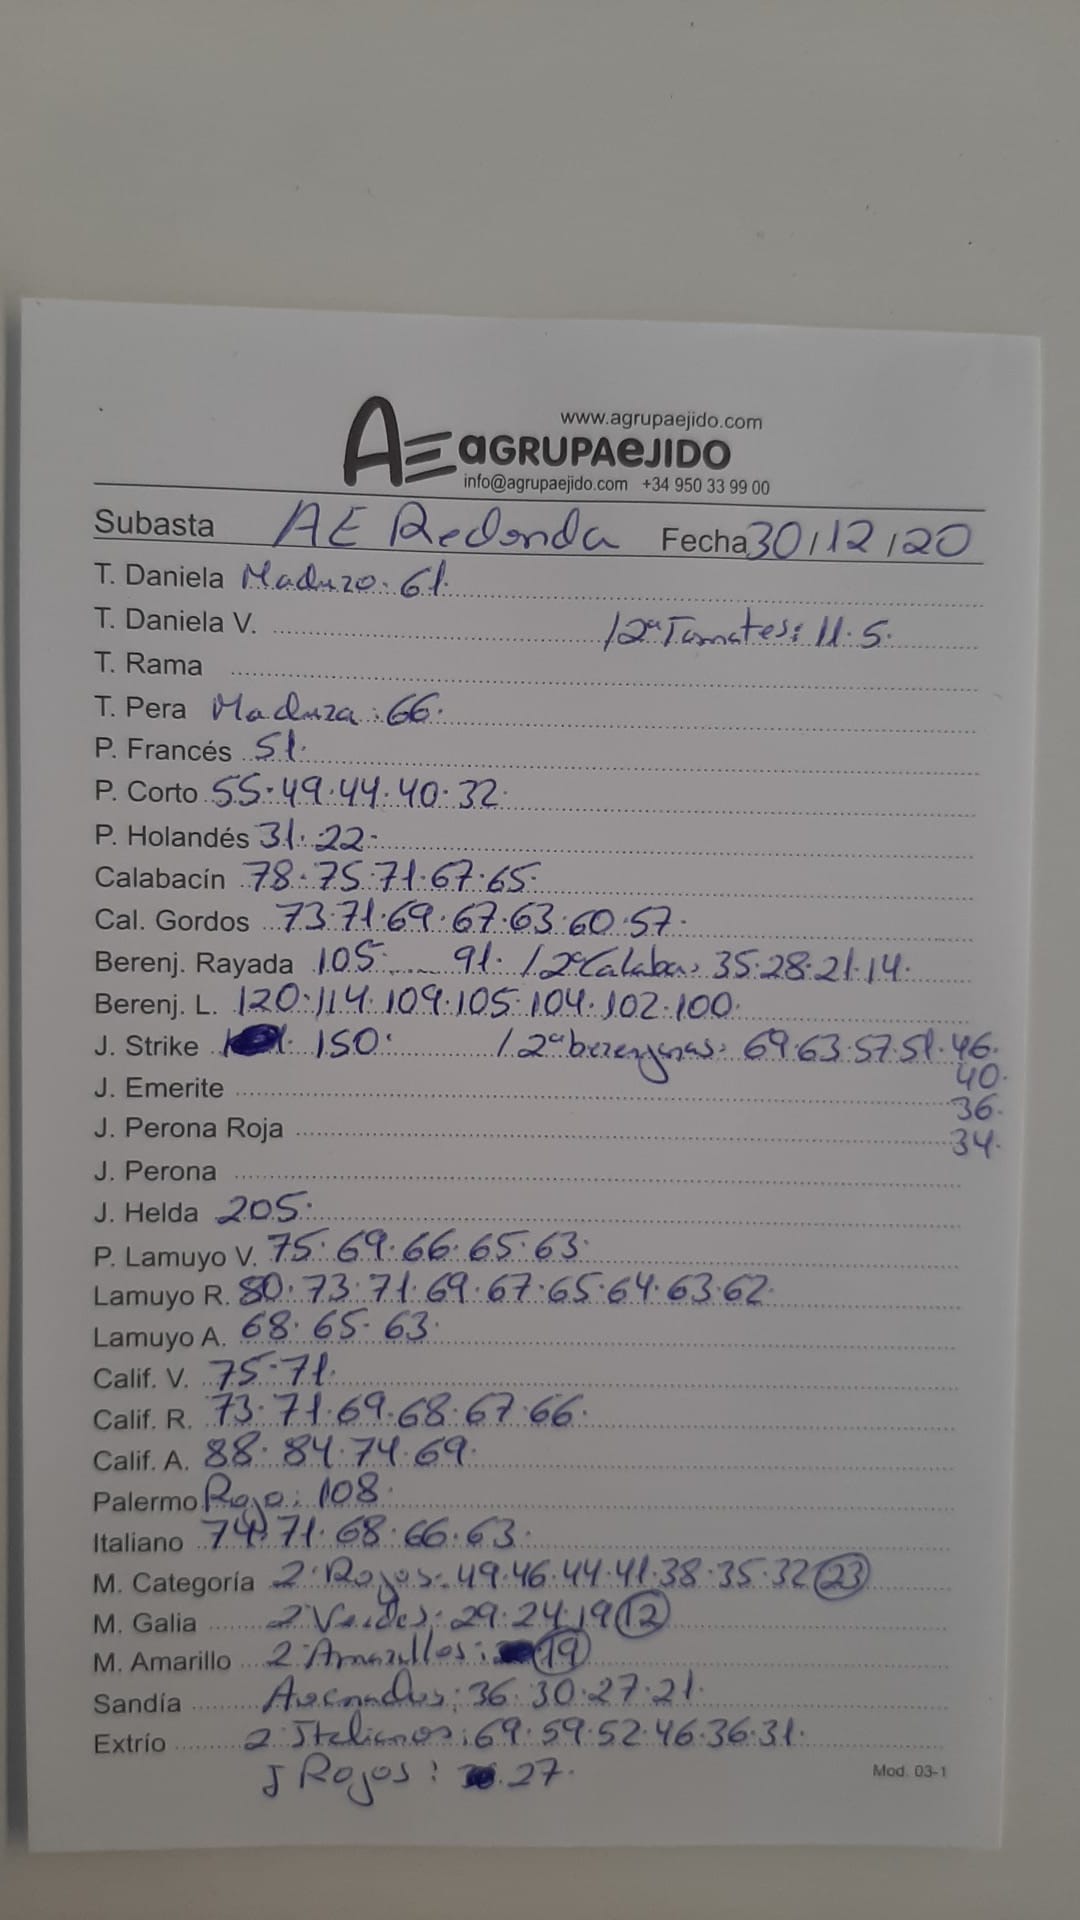 www.agrupaejido.com
AE AGRUPAEJIDO
info@agrupaejido.com +34 950 33 99 00
Subasta AE Redonda Fecha 30/12/20
T. Daniela Maduro: 61.
T. Daniela V. / 2ª Tomates: 11. 5.
T. Rama
T. Pera Madura: 66.
P. Francés 51.
P. Corto 55. 49. 44. 40. 32.
P. Holandés 31. 22.
Calabacín 78. 75. 71. 67. 65.
Cal. Gordos 73. 71. 69. 67. 63. 60. 57.
Berenj. Rayada 105. .... 91. / 2ª Calaba: 35. 28. 21. 14.
Berenj. L. 120. 114. 109. 105. 104. 102. 100.
J. Strike 150. / 2ª berenjenas: 69. 63. 57. 51. 46.
40.
J. Emerite
36.
J. Perona Roja
34.
J. Perona
J. Helda 205.
P. Lamuyo V. 75. 69. 66. 65. 63.
Lamuyo R. 80. 73. 71. 69. 67. 65. 64. 63. 62.
Lamuyo A. 68. 65. 63.
Calif. V. 75. 71.
Calif. R. 73. 71. 69. 68. 67. 66.
Calif. A. 88. 84. 74. 69.
Palermo Rojo: 108.
Italiano 74. 71. 68. 66. 63.
M. Categoría 2. Rojos: 49. 46. 44. 41. 38. 35. 32 23
M. Galia 2 Verdes: 29. 24. 19 12
M. Amarillo 2. Amarillos: 19
Sandía Asenadus: 36. 30. 27. 21.
Extrío 2. Italianos: 69. 59. 52. 46. 36. 31.
J Rojos: 27.
Mod. 03-1